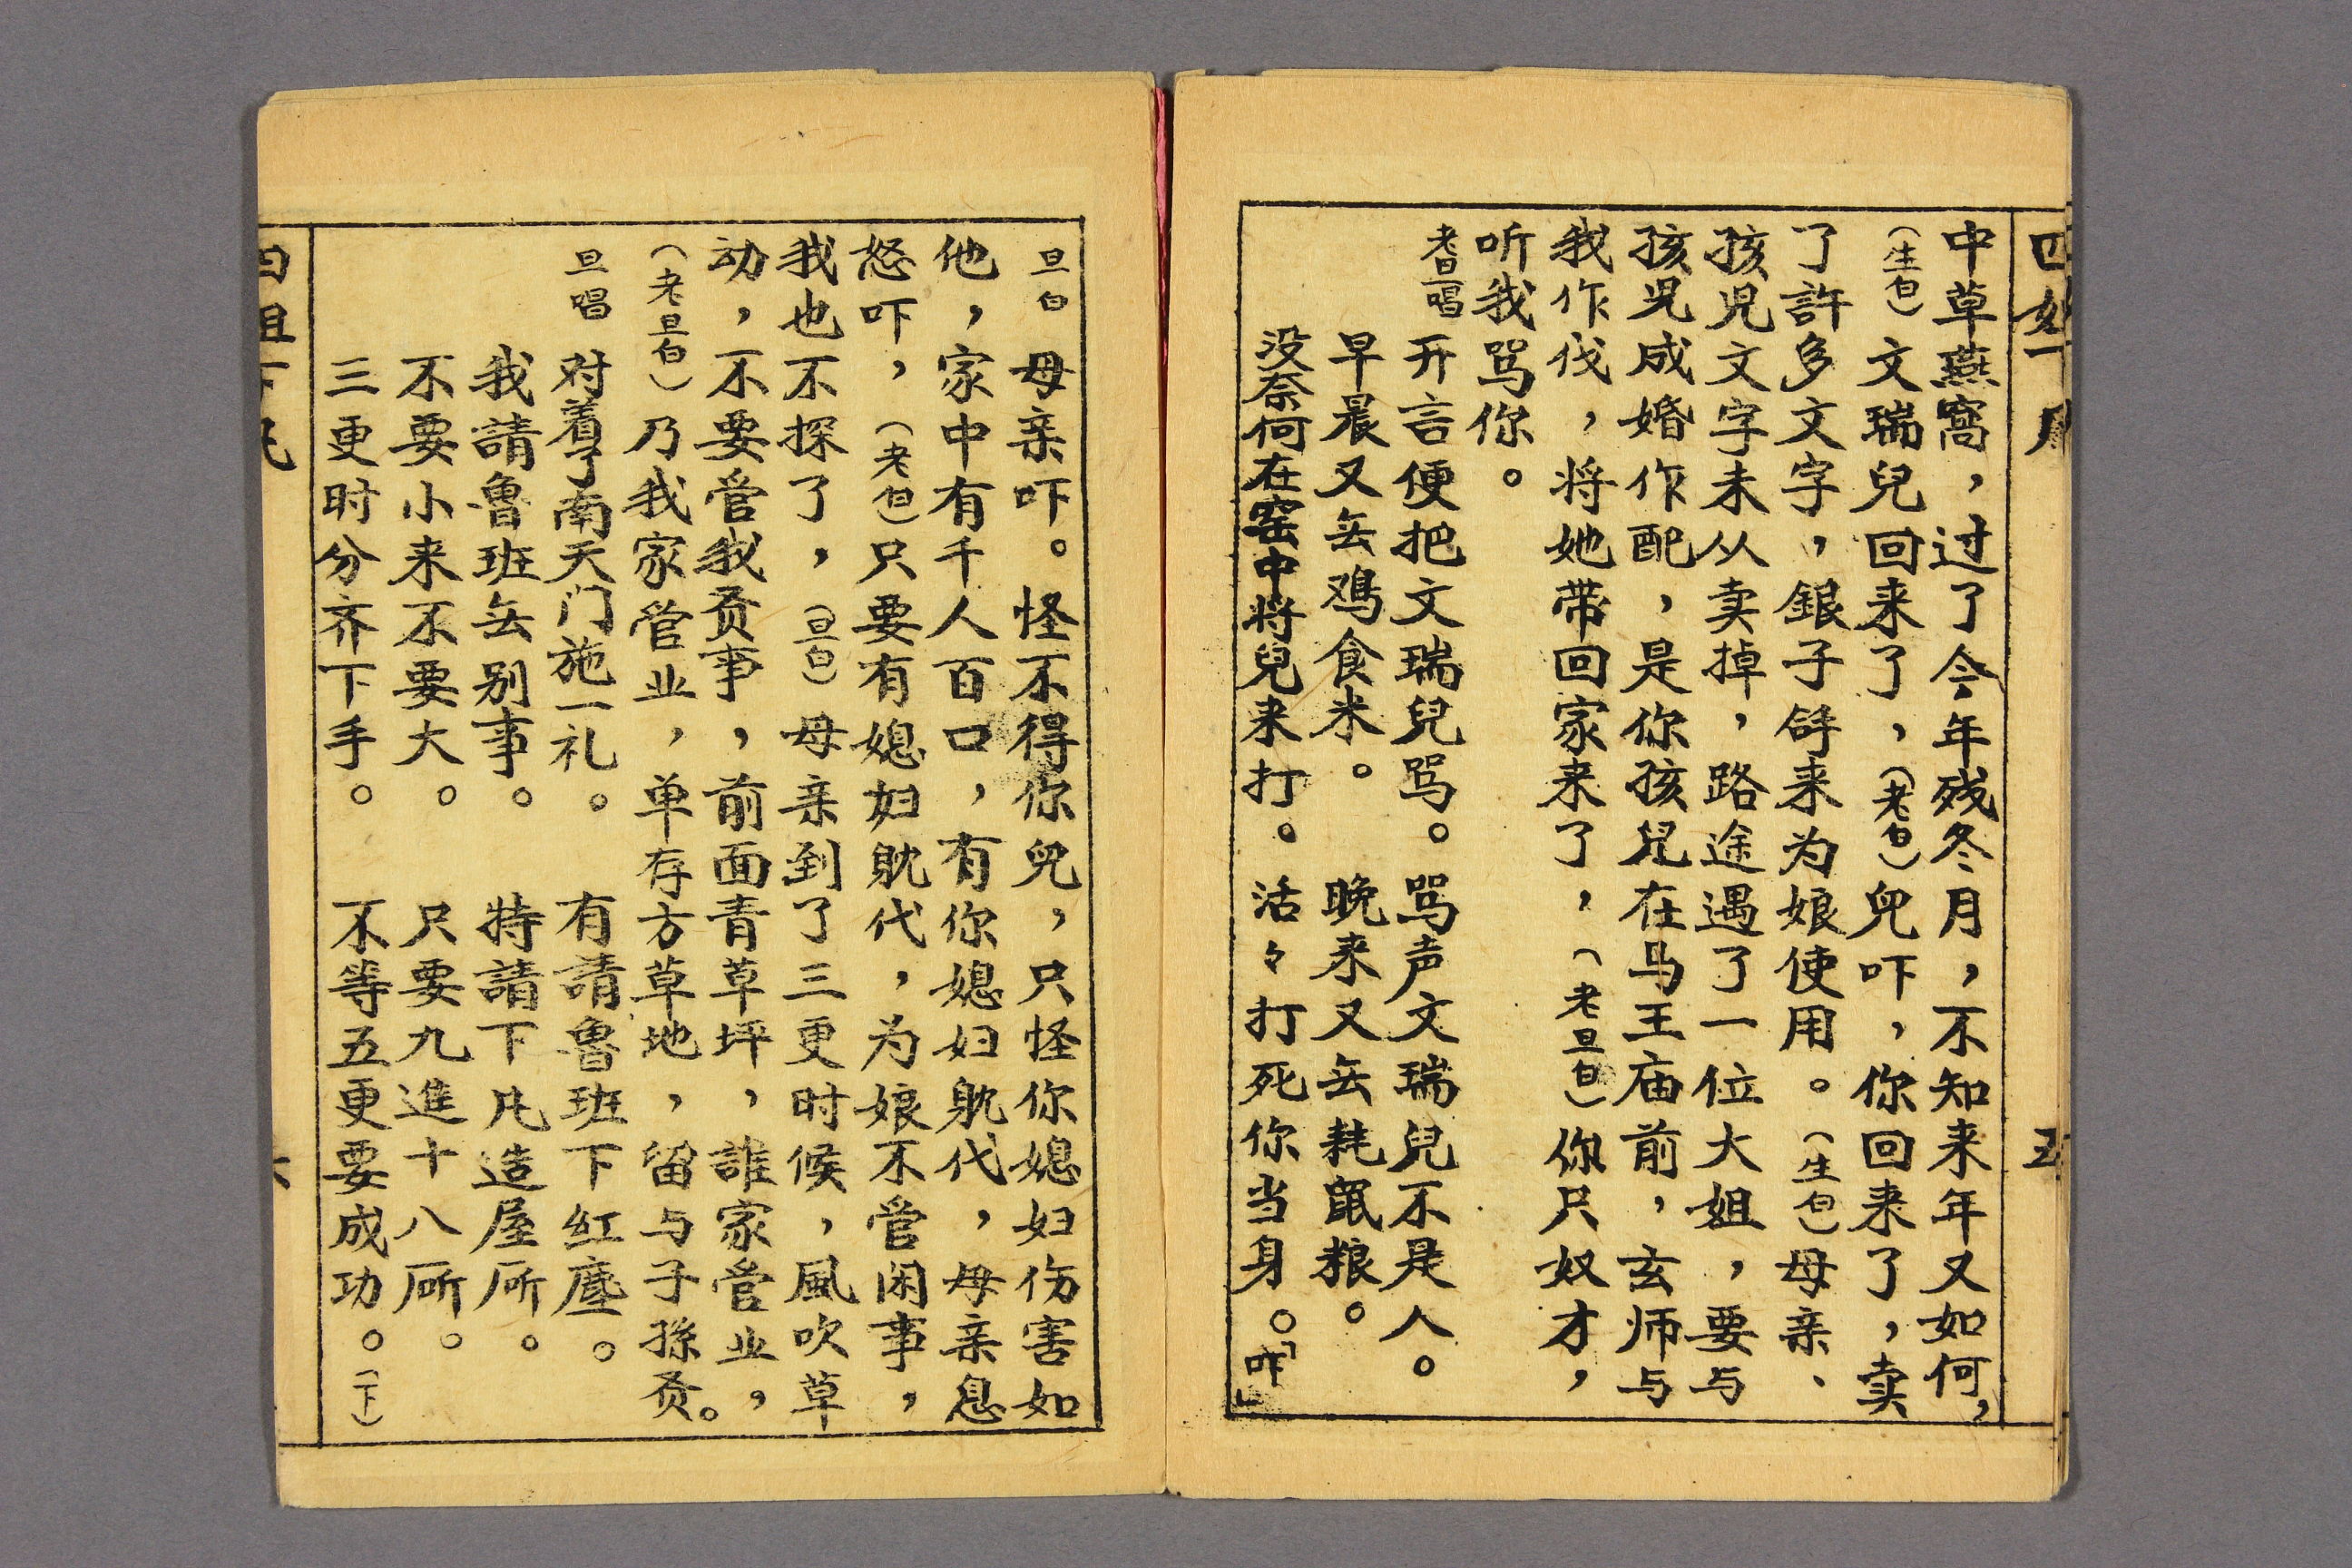 四姐下凡 五
中草燕窩，过了今年残冬月，不知来年又如何，
（生白）文瑞兒回来了，（老白）兒吓，你回来了，卖
了許多文字，銀子舒来为娘使用。（生白）母亲、
孩児文字未从卖掉，路途遇了一位大姐，要与
孩児成婚作配，是你孩兒在马王庙前，玄师与
我作伐，将她带回家来了，（老旦白）你只奴才，
听我骂你。
老旦唱 开言便把文瑞兒骂。 骂声文瑞兒不是人。
早晨又无鸡食米。 晚来又无耗鼠粮。
没奈何在窑中将兒来打。 活々打死你当身。「咋」
旦白 母亲吓。怪不得你兒，只怪你媳妇伤害如
他，家中有千人百口，有你媳妇躭代，母亲息
怒吓，（老白）只要有媳妇躭代，为娘不管闲事，
我也不探了，（旦白）母亲到了三更时候，風吹草
动，不要管我贡事，前面青草坪，誰家管业，
（老旦白）乃我家管业，单存方草地，留与子孫贡。
旦唱 对着了南天门施一礼。 有請魯班下红塵。
我請魯班无别事。 特請下凡造屋所。
不要小来不要大。 只要九進十八所。
三更时分齐下手。 不等五更要成功。（下）
四姐下凡 六